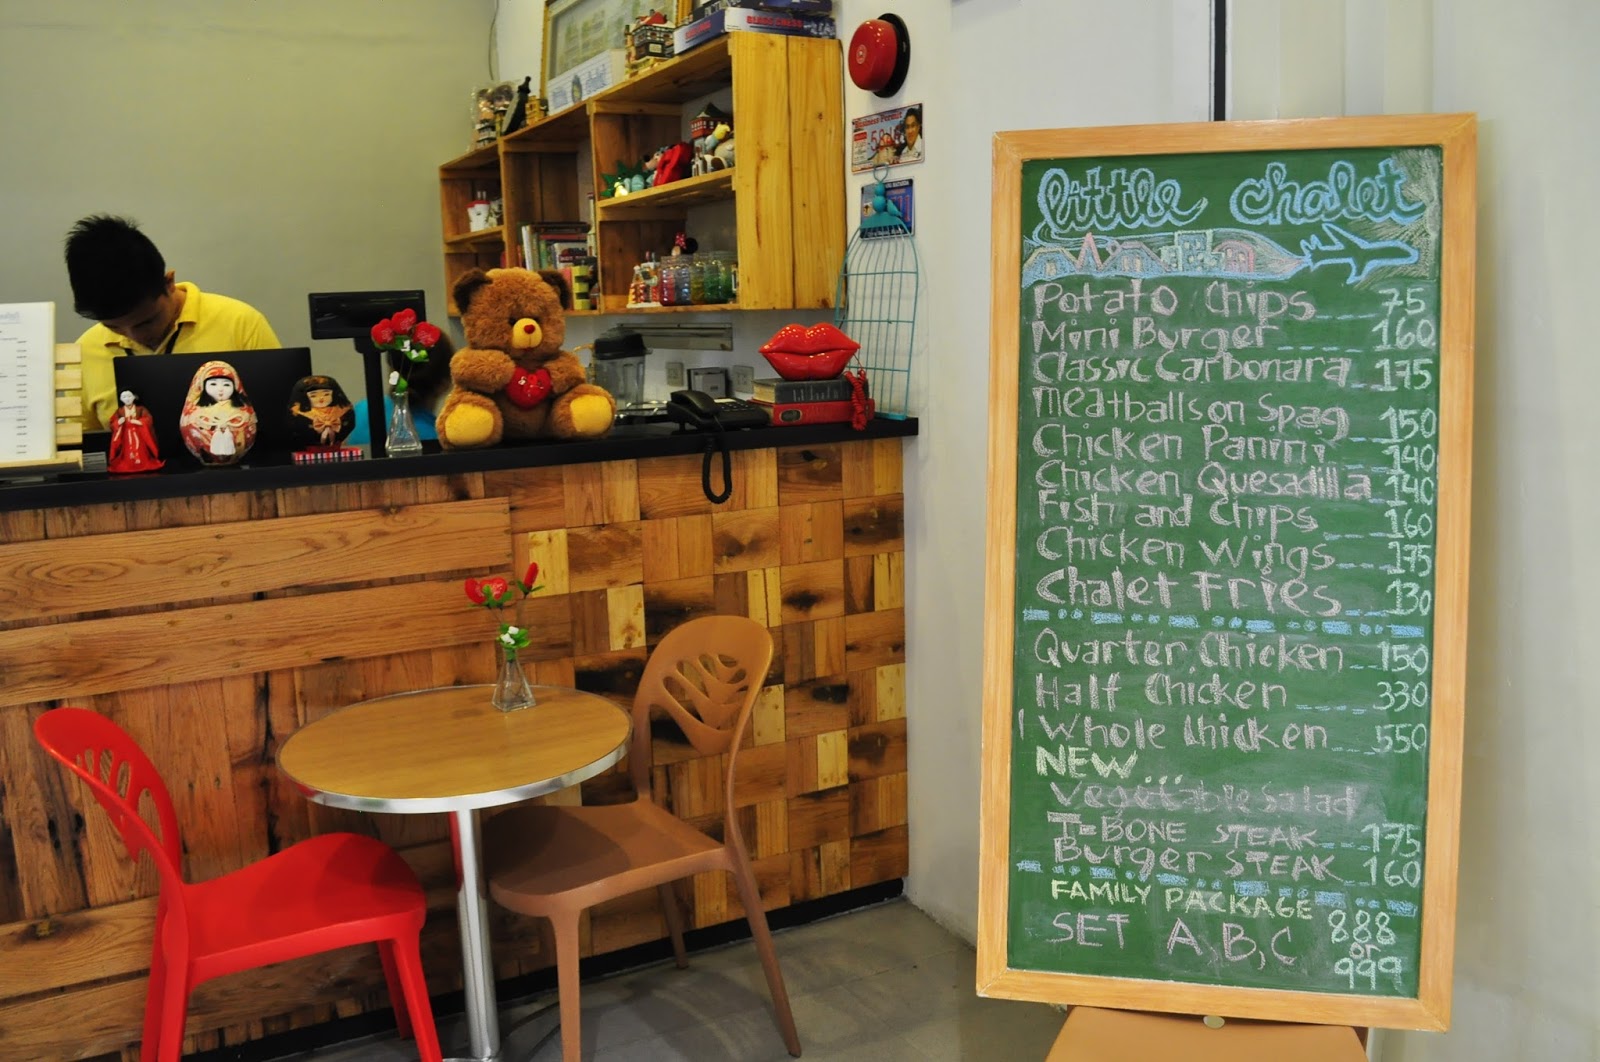 little chalet
Potato Chips 75
Mini Burger 160
Classic Carbonara 175
Meatballs on Spag 150
Chicken Panini 140
Chicken Quesadilla 140
Fish and Chips 160
Chicken Wings 175
Chalet Fries 130
Quarter Chicken 150
Half Chicken 330
1 Whole Chicken 550
NEW...
Vegetable Salad
T-BONE STEAK 175
Burger STEAK 160
FAMILY PACKAGE
SET A, B, C 888
or
999